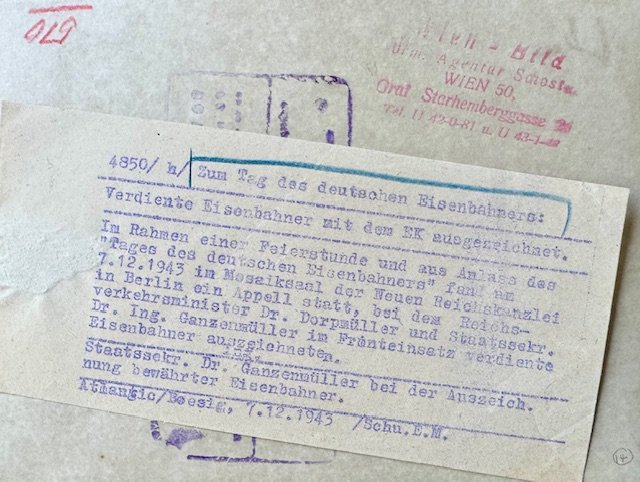 570
Wien - Bild
Agentur
WIEN 50,
Graf Starhemberggasse
4850/ h/ Zum Tag des deutschen Eisenbahners:
Verdiente Eisenbahner mit dem EK ausgezeichnet.
Im Rahmen einer Feierstunde und aus Anlass des
"Tages des deutschen Eisenbahners" fand am
7.12.1943 im Mosaiksaal der Neuen Reichskanzlei
in Berlin ein Appell statt, bei dem Reichs-
verkehrsminister Dr. Dorpmüller und Staatssekr.
Dr. Ing. Ganzenmüller im Fronteinsatz verdiente
Eisenbahner auszeichneten.
Staatssekr. Dr. Ganzenmüller bei der Auszeich.
nung bewährter Eisenbahner.
Atlantic/Boesig, 7.12.1943 /Schu.E.M.